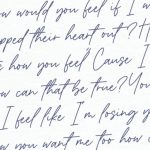 would you feel if I w
pped their heart out? H
how you feel Cause I
can that be true? You
I feel like I'm losing y
you want me too how c